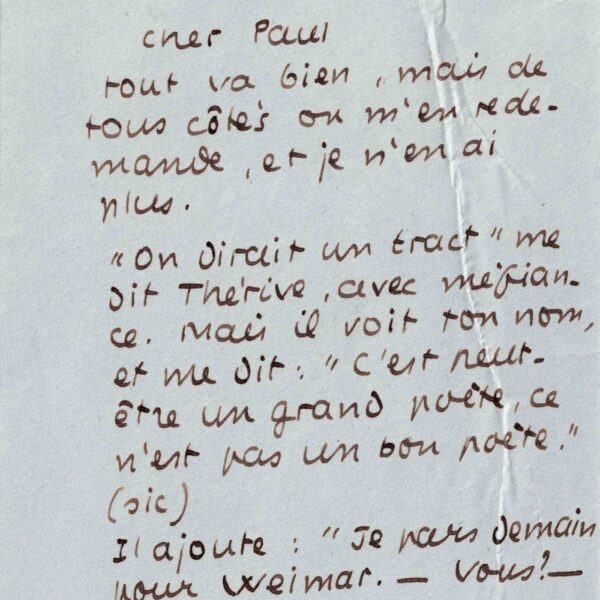 cher Paul
tout va bien, mais de
tous côtés on m'en rede-
mande, et je n'en ai
plus.
"On dirait un tract" me
dit Thérive, avec méfian-
ce. Mais il voit ton nom,
et me dit : "C'est peut-
être un grand poète, ce
n'est pas un bon poète."
(sic)
Il ajoute : "Je pars demain
pour Weimar. — Vous? —